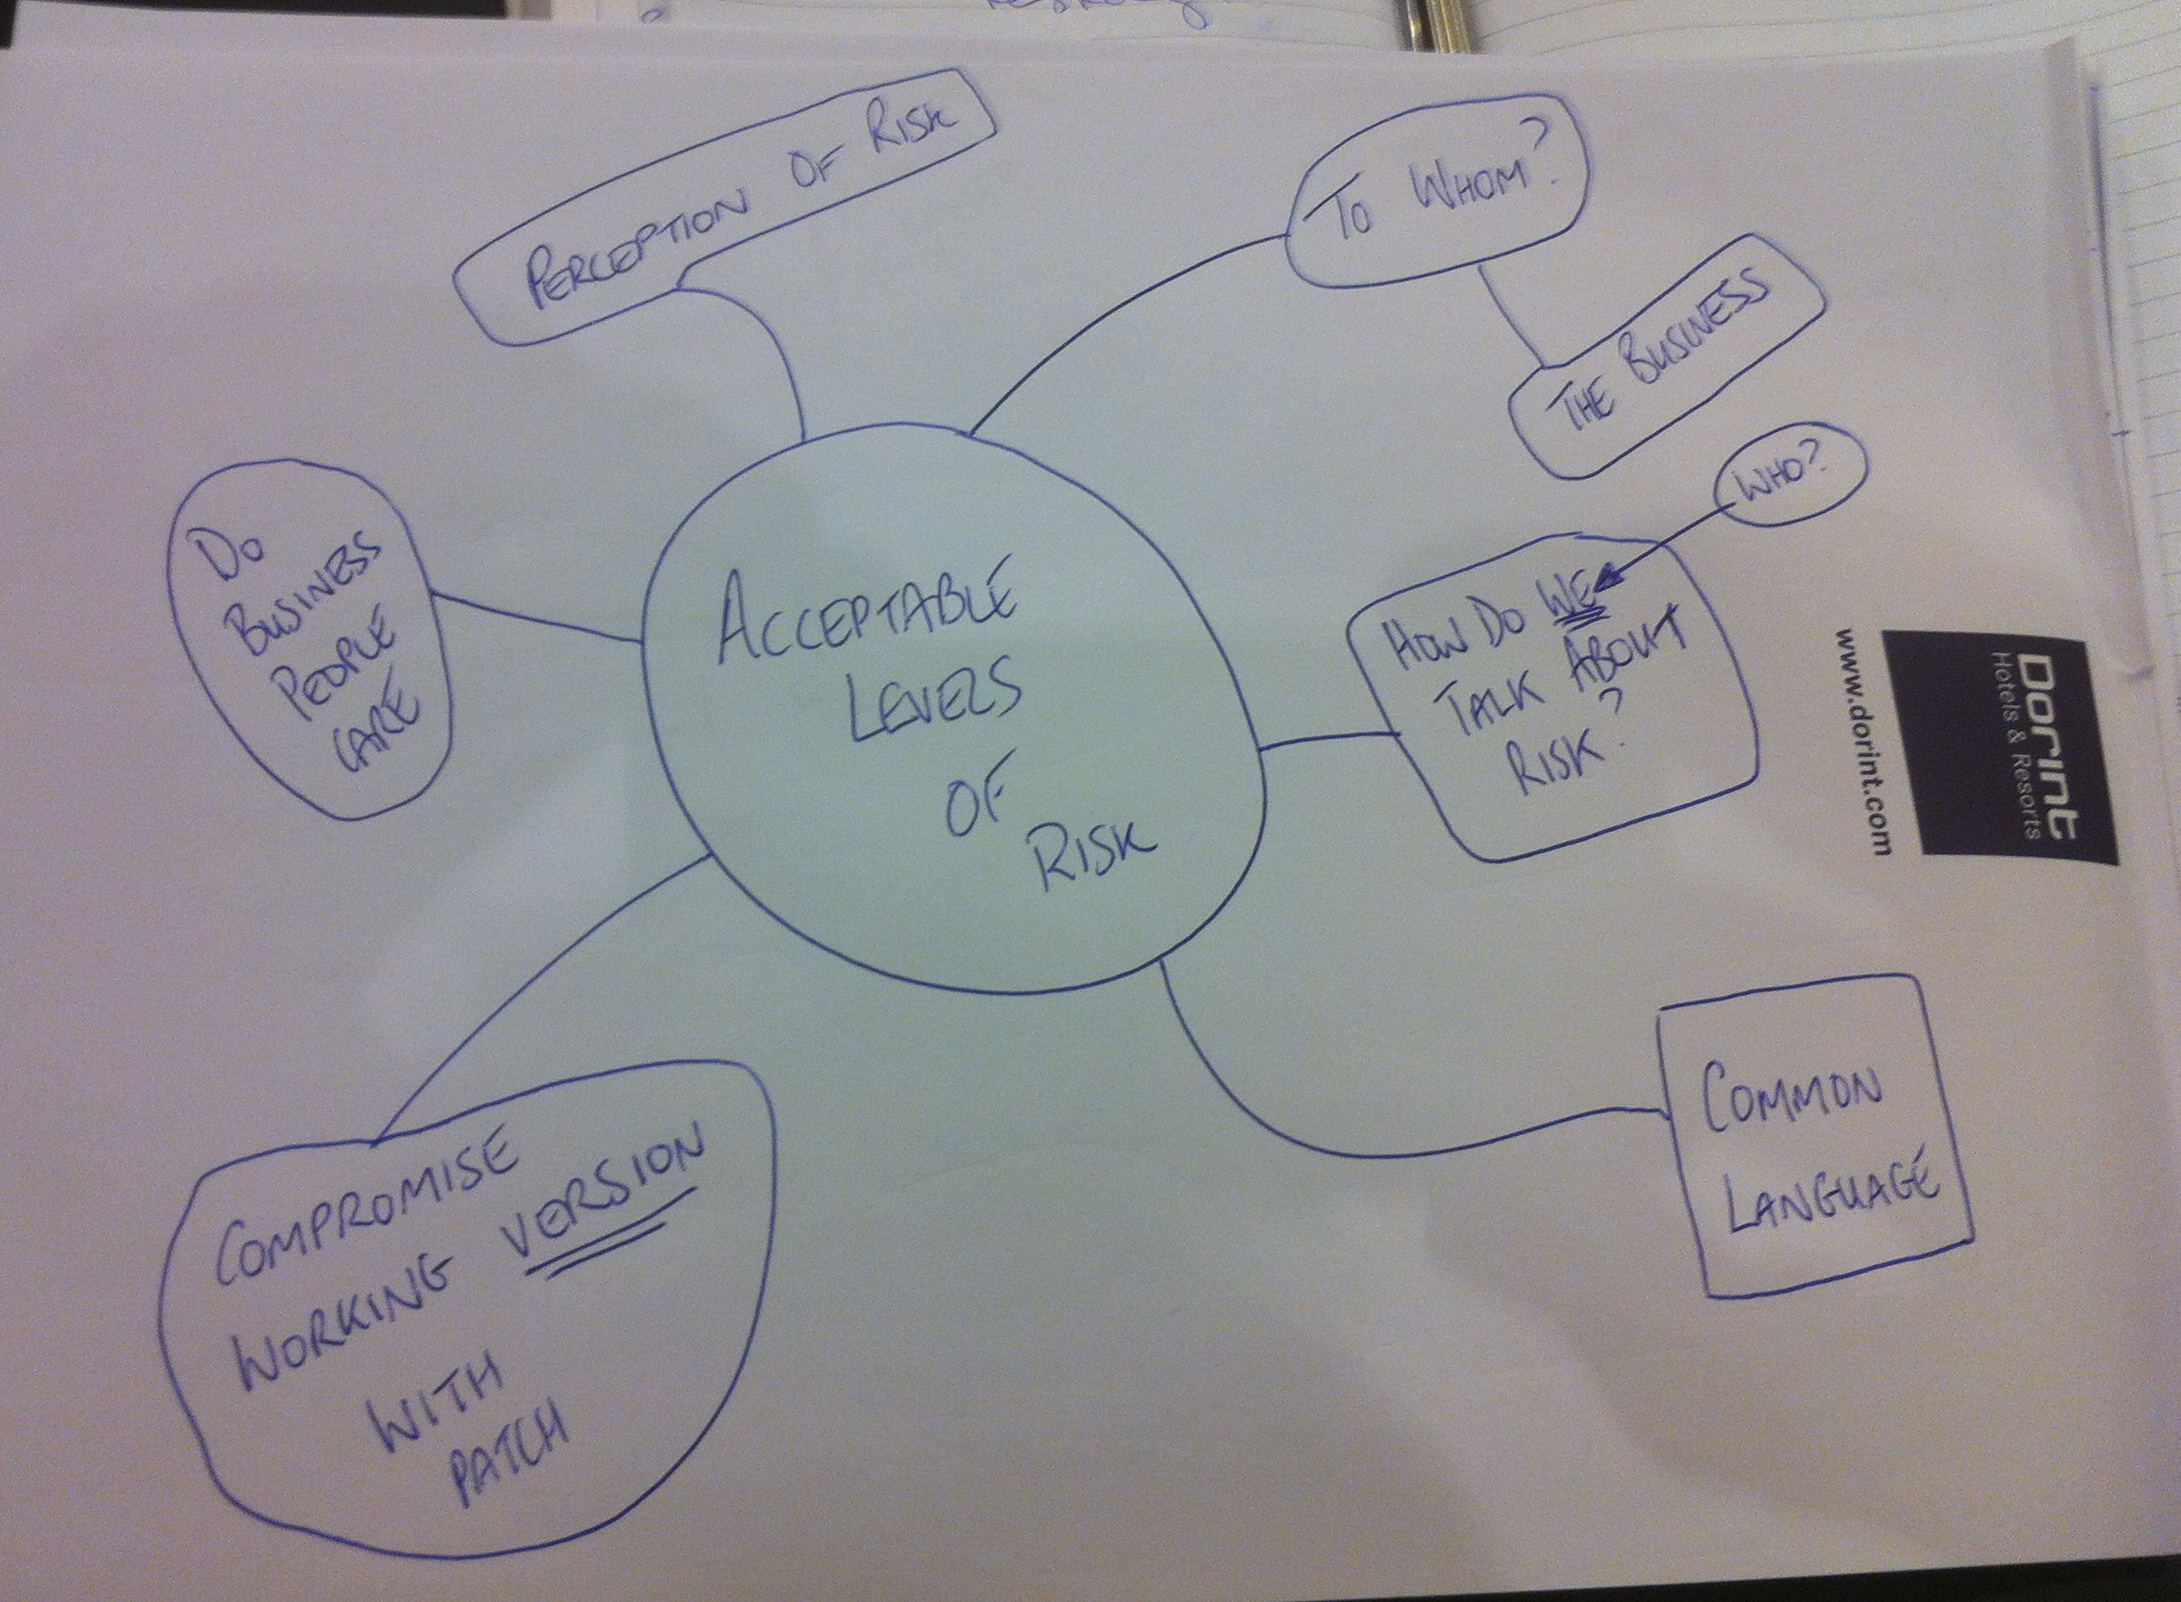 PERCEPTION OF RISK
TO WHOM?
THE BUSINESS
WHO?
DO
BUSINESS
PEOPLE
CARE
ACCEPTABLE
LEVELS
OF
RISK
HOW DO WE
TALK ABOUT
RISK?
Dorint
Hotels & Resorts
www.dorint.com
COMMON
LANGUAGE
COMPROMISE
WORKING VERSION
WITH
PATCH